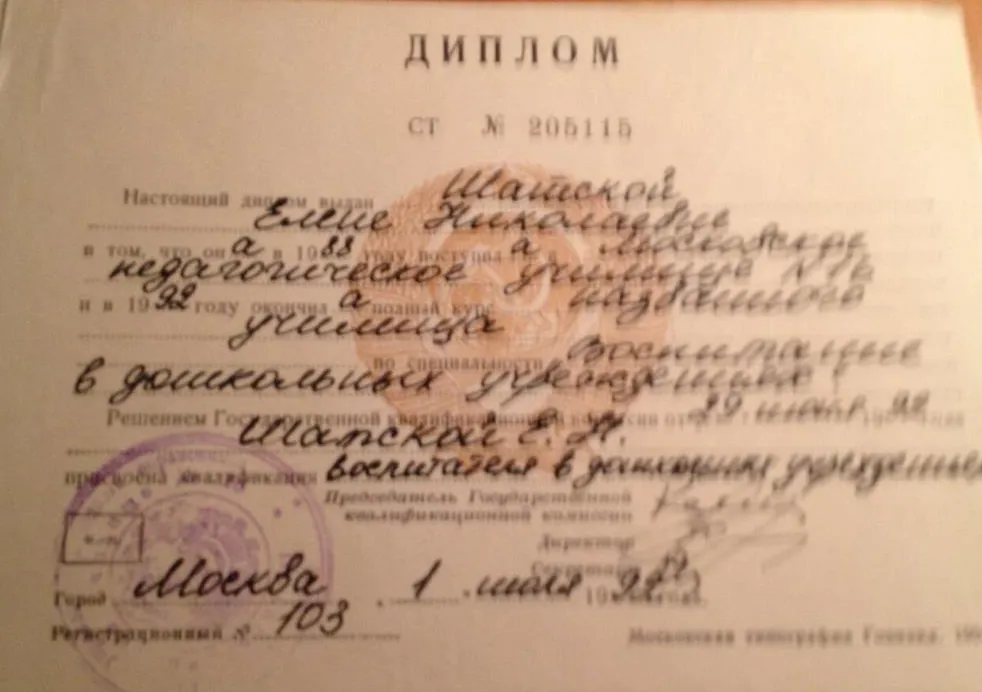 ДИПЛОМ
СТ № 205115
Настоящий диплом выдан Шатской
Елене Николаевне
в том, что она в 1988 году поступила в Московское
педагогическое училище №16
и в 1992 году окончила полный курс названного
училища
по специальности Воспитание
в дошкольных учреждениях
Решением Государственной квалификационной комиссии от 29 июня 1992 года
Шатской Е. Н.
присвоена квалификация воспитателя в дошкольных учреждениях
Председатель Государственной
квалификационной комиссии
Директор
Секретарь
Город Москва, 1 июля 1992
Регистрационный № 103
Московская типография Гознака.